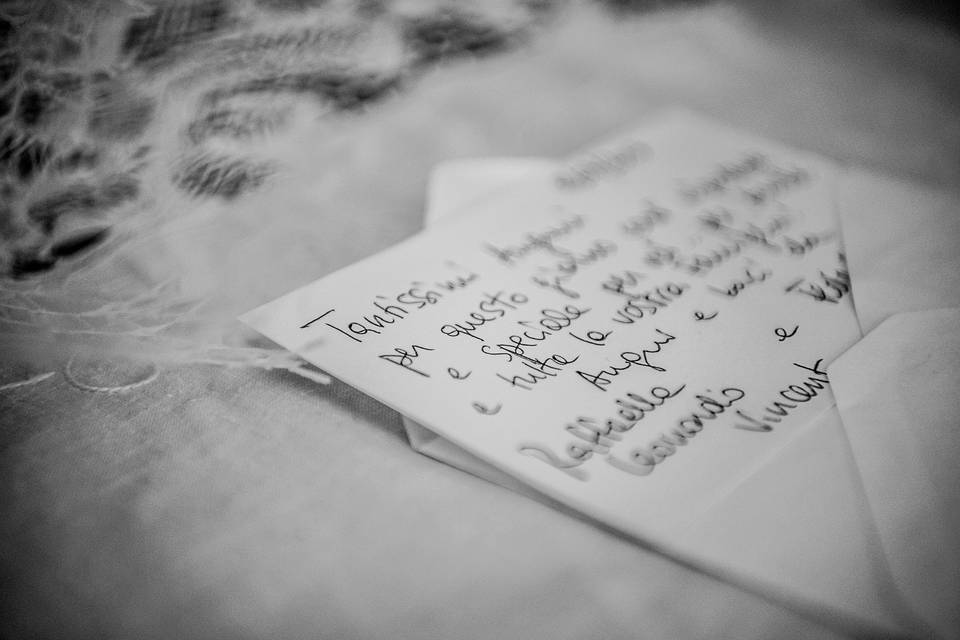 Tantissimi Auguri
per questo giorno così
e speciale per
e tutta la vostra famiglia
Auguri e baci da
Raffaella e
Leonardo
Vincent